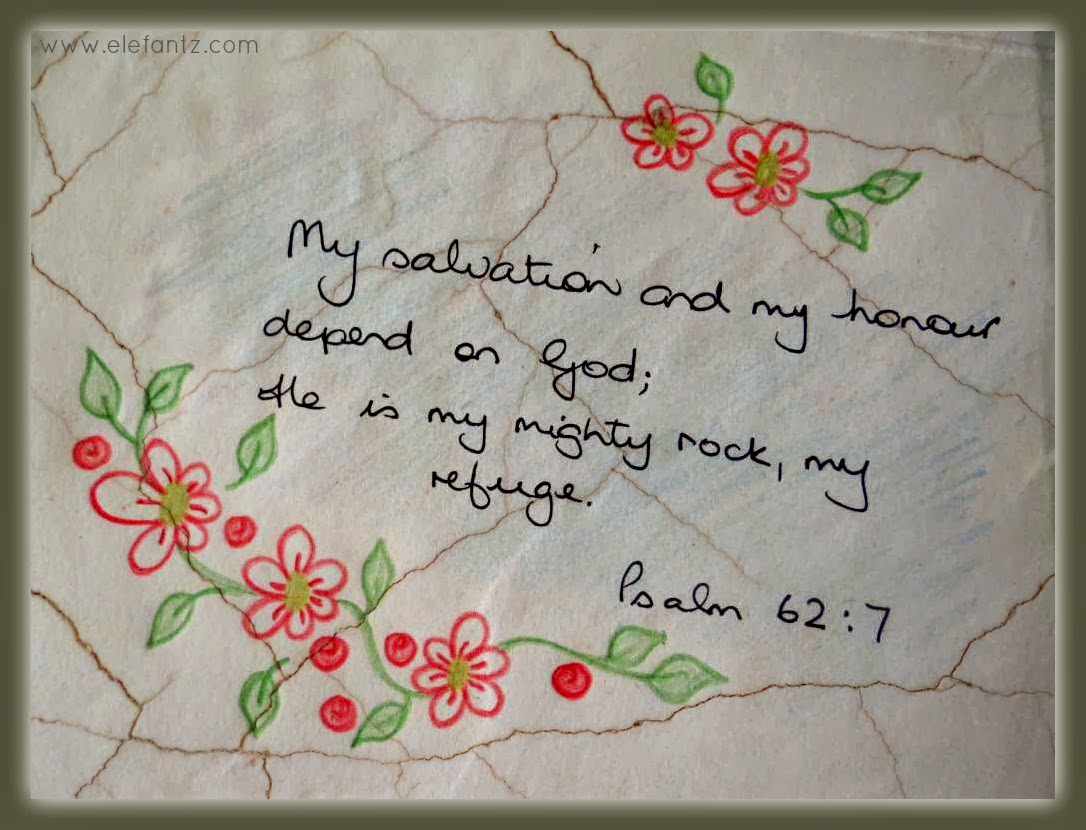 www.elefantz.com
My salvation and my honour
depend on God;
He is my mighty rock, my
refuge.
Psalm 62:7